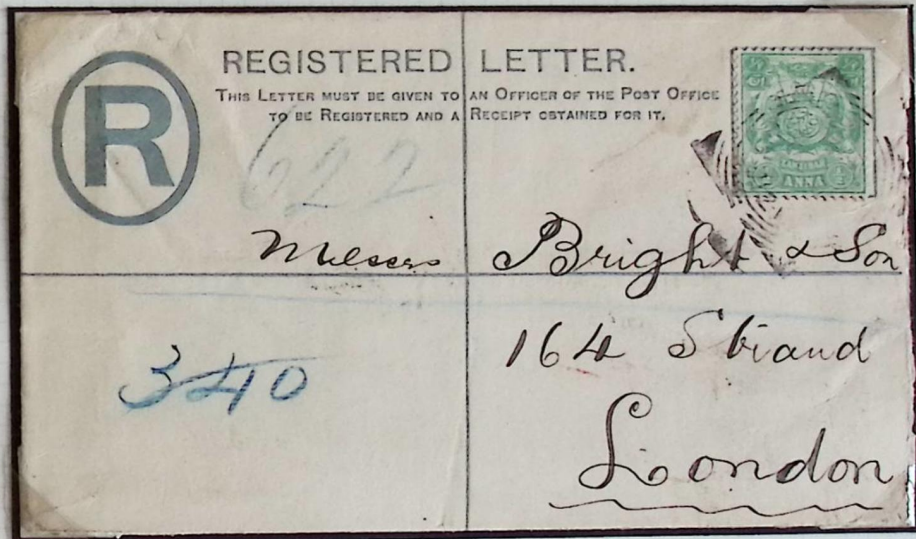 REGISTERED LETTER.
THIS LETTER MUST BE GIVEN TO AN OFFICER OF THE POST OFFICE
TO BE REGISTERED AND A RECEIPT OBTAINED FOR IT.
R
622
ANNA
Messrs Bright & Son
164 Strand
340
London